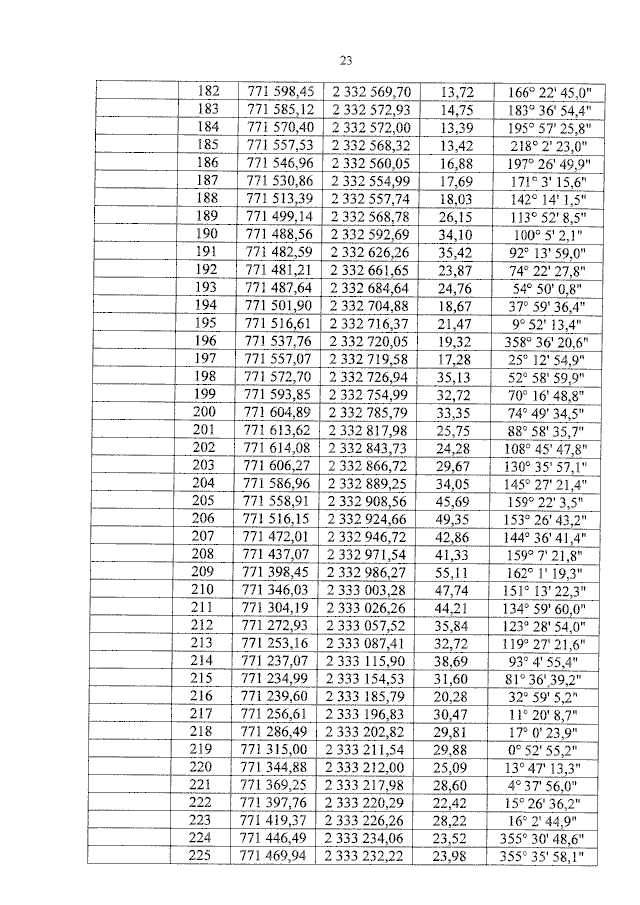 23
182 771 598,45 2 332 569,70 13,72 166° 22' 45,0"
183 771 585,12 2 332 572,93 14,75 183° 36' 54,4"
184 771 570,40 2 332 572,00 13,39 195° 57' 25,8"
185 771 557,53 2 332 568,32 13,42 218° 2' 23,0"
186 771 546,96 2 332 560,05 16,88 197° 26' 49,9"
187 771 530,86 2 332 554,99 17,69 171° 3' 15,6"
188 771 513,39 2 332 557,74 18,03 142° 14' 1,5"
189 771 499,14 2 332 568,78 26,15 113° 52' 8,5"
190 771 488,56 2 332 592,69 34,10 100° 5' 2,1"
191 771 482,59 2 332 626,26 35,42 92° 13' 59,0"
192 771 481,21 2 332 661,65 23,87 74° 22' 27,8"
193 771 487,64 2 332 684,64 24,76 54° 50' 0,8"
194 771 501,90 2 332 704,88 18,67 37° 59' 36,4"
195 771 516,61 2 332 716,37 21,47 9° 52' 13,4"
196 771 537,76 2 332 720,05 19,32 358° 36' 20,6"
197 771 557,07 2 332 719,58 17,28 25° 12' 54,9"
198 771 572,70 2 332 726,94 35,13 52° 58' 59,9"
199 771 593,85 2 332 754,99 32,72 70° 16' 48,8"
200 771 604,89 2 332 785,79 33,35 74° 49' 34,5"
201 771 613,62 2 332 817,98 25,75 88° 58' 35,7"
202 771 614,08 2 332 843,73 24,28 108° 45' 47,8"
203 771 606,27 2 332 866,72 29,67 130° 35' 57,1"
204 771 586,96 2 332 889,25 34,05 145° 27' 21,4"
205 771 558,91 2 332 908,56 45,69 159° 22' 3,5"
206 771 516,15 2 332 924,66 49,35 153° 26' 43,2"
207 771 472,01 2 332 946,72 42,86 144° 36' 41,4"
208 771 437,07 2 332 971,54 41,33 159° 7' 21,8"
209 771 398,45 2 332 986,27 55,11 162° 1' 19,3"
210 771 346,03 2 333 003,28 47,74 151° 13' 22,3"
211 771 304,19 2 333 026,26 44,21 134° 59' 60,0"
212 771 272,93 2 333 057,52 35,84 123° 28' 54,0"
213 771 253,16 2 333 087,41 32,72 119° 27' 21,6"
214 771 237,07 2 333 115,90 38,69 93° 4' 55,4"
215 771 234,99 2 333 154,53 31,60 81° 36' 39,2"
216 771 239,60 2 333 185,79 20,28 32° 59' 5,2"
217 771 256,61 2 333 196,83 30,47 11° 20' 8,7"
218 771 286,49 2 333 202,82 29,81 17° 0' 23,9"
219 771 315,00 2 333 211,54 29,88 0° 52' 55,2"
220 771 344,88 2 333 212,00 25,09 13° 47' 13,3"
221 771 369,25 2 333 217,98 28,60 4° 37' 56,0"
222 771 397,76 2 333 220,29 22,42 15° 26' 36,2"
223 771 419,37 2 333 226,26 28,22 16° 2' 44,9"
224 771 446,49 2 333 234,06 23,52 355° 30' 48,6"
225 771 469,94 2 333 232,22 23,98 355° 35' 58,1"